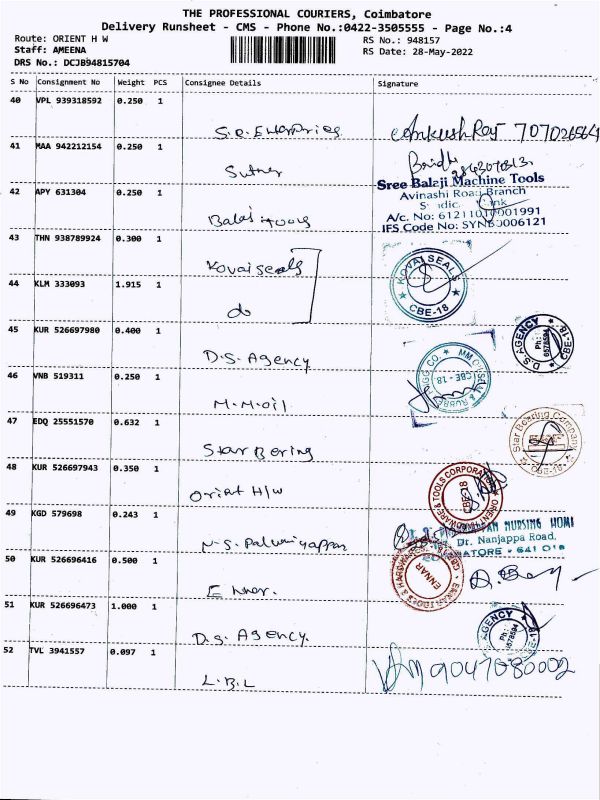 THE PROFESSIONAL COURIERS, Coimbatore
Delivery Runsheet - CMS - Phone No.:0422-3505555 - Page No.:4
Route: ORIENT H W
RS No.: 948157
Staff: AMEENA
RS Date: 28-May-2022
DRS No.: DCJB94815704
S No Consignment No Weight PCS Consignee Details Signature
40 VPL 939318592 0.250 1
S.R. Enterpries
41 MAA 942212154 0.250 1
Sree Balaji Machine Tools
Avinashi Road Branch
42 APY 631304 0.250 1
A/c. No: 61211010001991
IFS Code No: SYNB0006121
43 THN 938789924 0.300 1
Kovai seals
KOVAI SEALS
CBE-18
44 KLM 333093 1.915 1
do
45 KUR 526697980 0.400 1
D.S. Agency
D.S AGENCY CBE-18
Ph:
46 VNB 519311 0.250 1
M.M.oil
CBE - 18
47 EDQ 25551570 0.632 1
Star Bering
Star Bearing Company
CBE-18
48 KUR 526697943 0.350 1
Orint H/w
CBE-18
49 KGD 579698 0.243 1
NURSING HOME
Dr. Nanjappa Road,
50 KUR 526696416 0.500 1
Ennar.
ENNAR
51 KUR 526696473 1.000 1
D.S. Agency.
AGENCY
52 TVL 3941557 0.097 1
L.B.L
9047080002